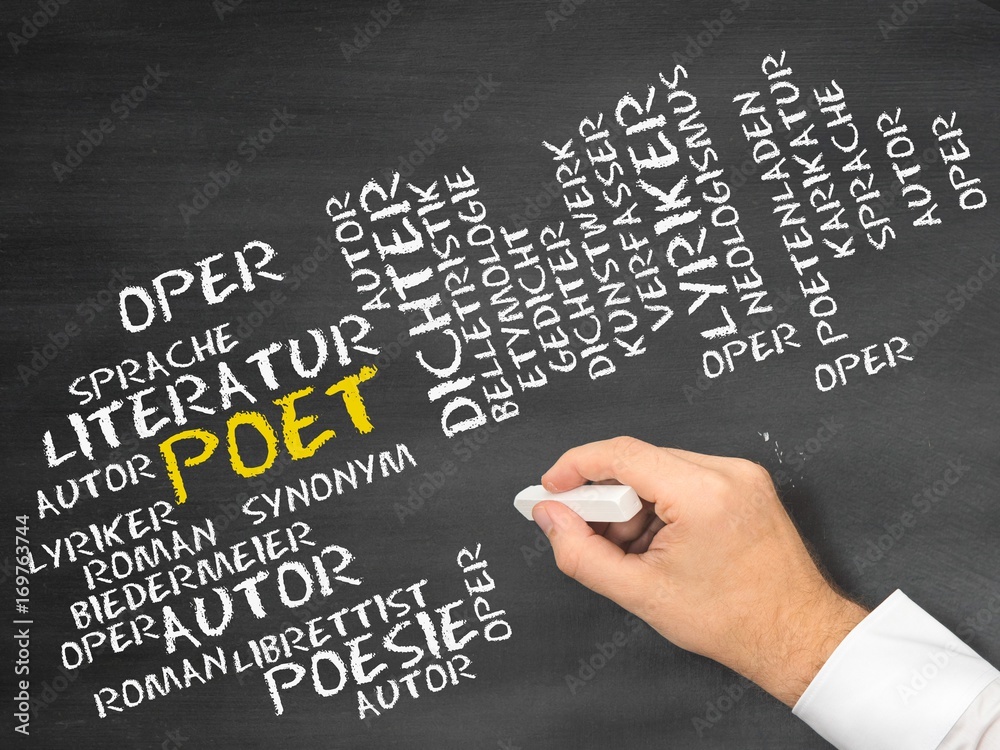 OPER
SPRACHE
LITERATUR
POET
AUTOR
SYNONYM
LYRIKER
ROMAN
BIEDERMEIER
OPER
AUTOR
ROMAN
LIBRETTIST
POESIE
AUTOR
OPER
AUTOR
DICHTER
BELLETRISTIK
ETYMOLOGIE
GEDICHT
DICHTER
KUNSTWERK
VERFASSER
LYRIKER
NEOLOGISMUS
OPER
POETENLADEN
KARIKATUR
SPRACHE
AUTOR
OPER
OPER
Adobe Stock | #169763744